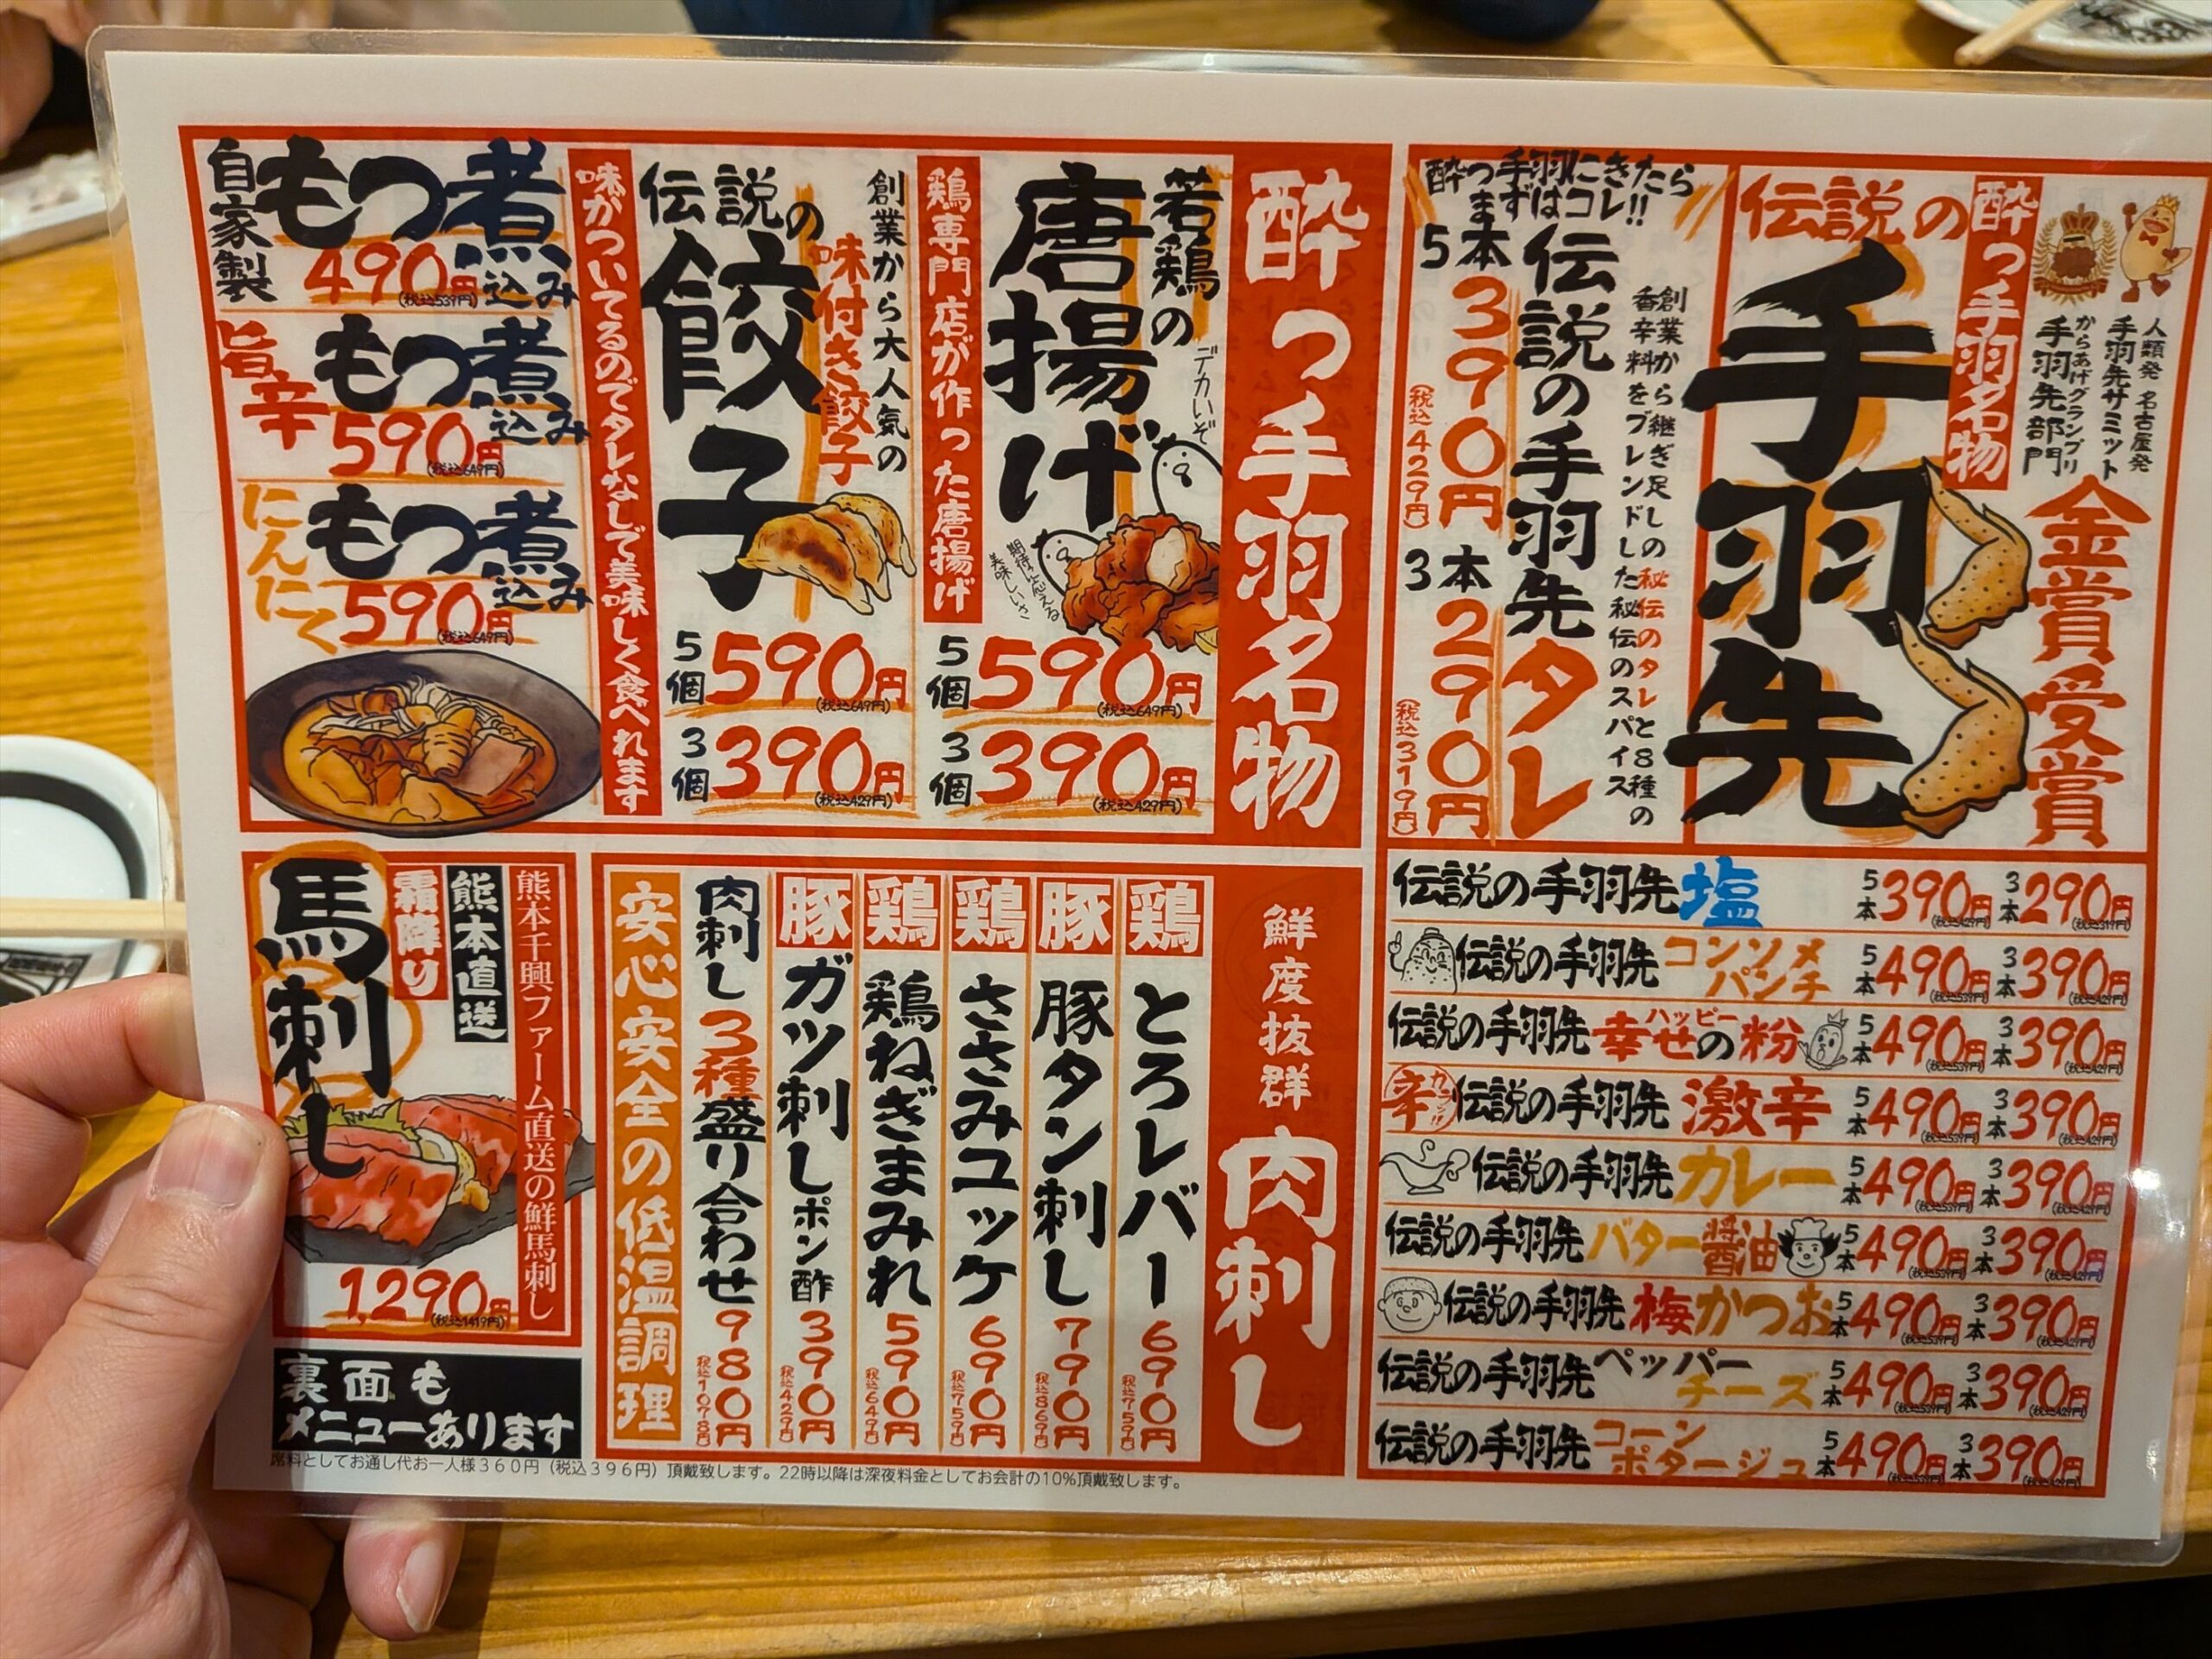 酔っ手羽名物
伝説の
手羽先
人類発 名古屋発
手羽先サミット
からあげグランプリ
手羽先部門
金賞受賞
酔っ手羽にきたら
まずはコレ!!
創業から継ぎ足しの秘伝のタレと8種の
香辛料をブレンドした秘伝のスパイス
伝説の手羽先タレ
5本390円
(税込429円)
3本290円
(税込319円)
伝説の手羽先 塩 5本390円(税込429円) 3本290円(税込319円)
伝説の手羽先 コンソメパンチ 5本490円(税込539円) 3本390円(税込429円)
伝説の手羽先 幸せの粉 5本490円(税込539円) 3本390円(税込429円)
ハッピー
辛
伝説の手羽先 激辛 5本490円(税込539円) 3本390円(税込429円)
伝説の手羽先 カレー 5本490円(税込539円) 3本390円(税込429円)
伝説の手羽先 バター醤油 5本490円(税込539円) 3本390円(税込429円)
伝説の手羽先 梅かつお 5本490円(税込539円) 3本390円(税込429円)
伝説の手羽先 ペッパーチーズ 5本490円(税込539円) 3本390円(税込429円)
伝説の手羽先 コーンポタージュ 5本490円(税込539円) 3本390円(税込429円)
酔っ手羽名物
若鶏の
唐揚げ
デカいぞ
期待に応える
美味しいさ
鶏専門店が作った唐揚げ
5個590円(税込649円)
3個390円(税込429円)
創業から大人気の
味付き餃子
伝説の
餃子
5個590円(税込649円)
3個390円(税込429円)
味がついてるのでタレなしで美味しく食べれます
自家製
もつ煮込み
490円(税込539円)
旨辛
もつ煮込み
590円(税込649円)
にんにく
もつ煮込み
590円(税込649円)
鮮度抜群
肉刺し
鶏 とろレバー 690円 税込759円
豚 豚タン刺し 790円 税込869円
鶏 ささみユッケ 690円 税込759円
鶏 鶏ねぎまみれ 590円 税込649円
豚 ガツ刺しポン酢 390円 税込429円
肉刺し3種盛り合わせ 980円 税込1078円
安心安全の低温調理
熊本千興ファーム直送の鮮馬刺し
熊本直送
霜降り
馬刺し
1,290円(税込1419円)
裏面も
メニューあります
席料としてお通し代お一人様360円（税込396円）頂戴致します。22時以降は深夜料金としてお会計の10%頂戴致します。